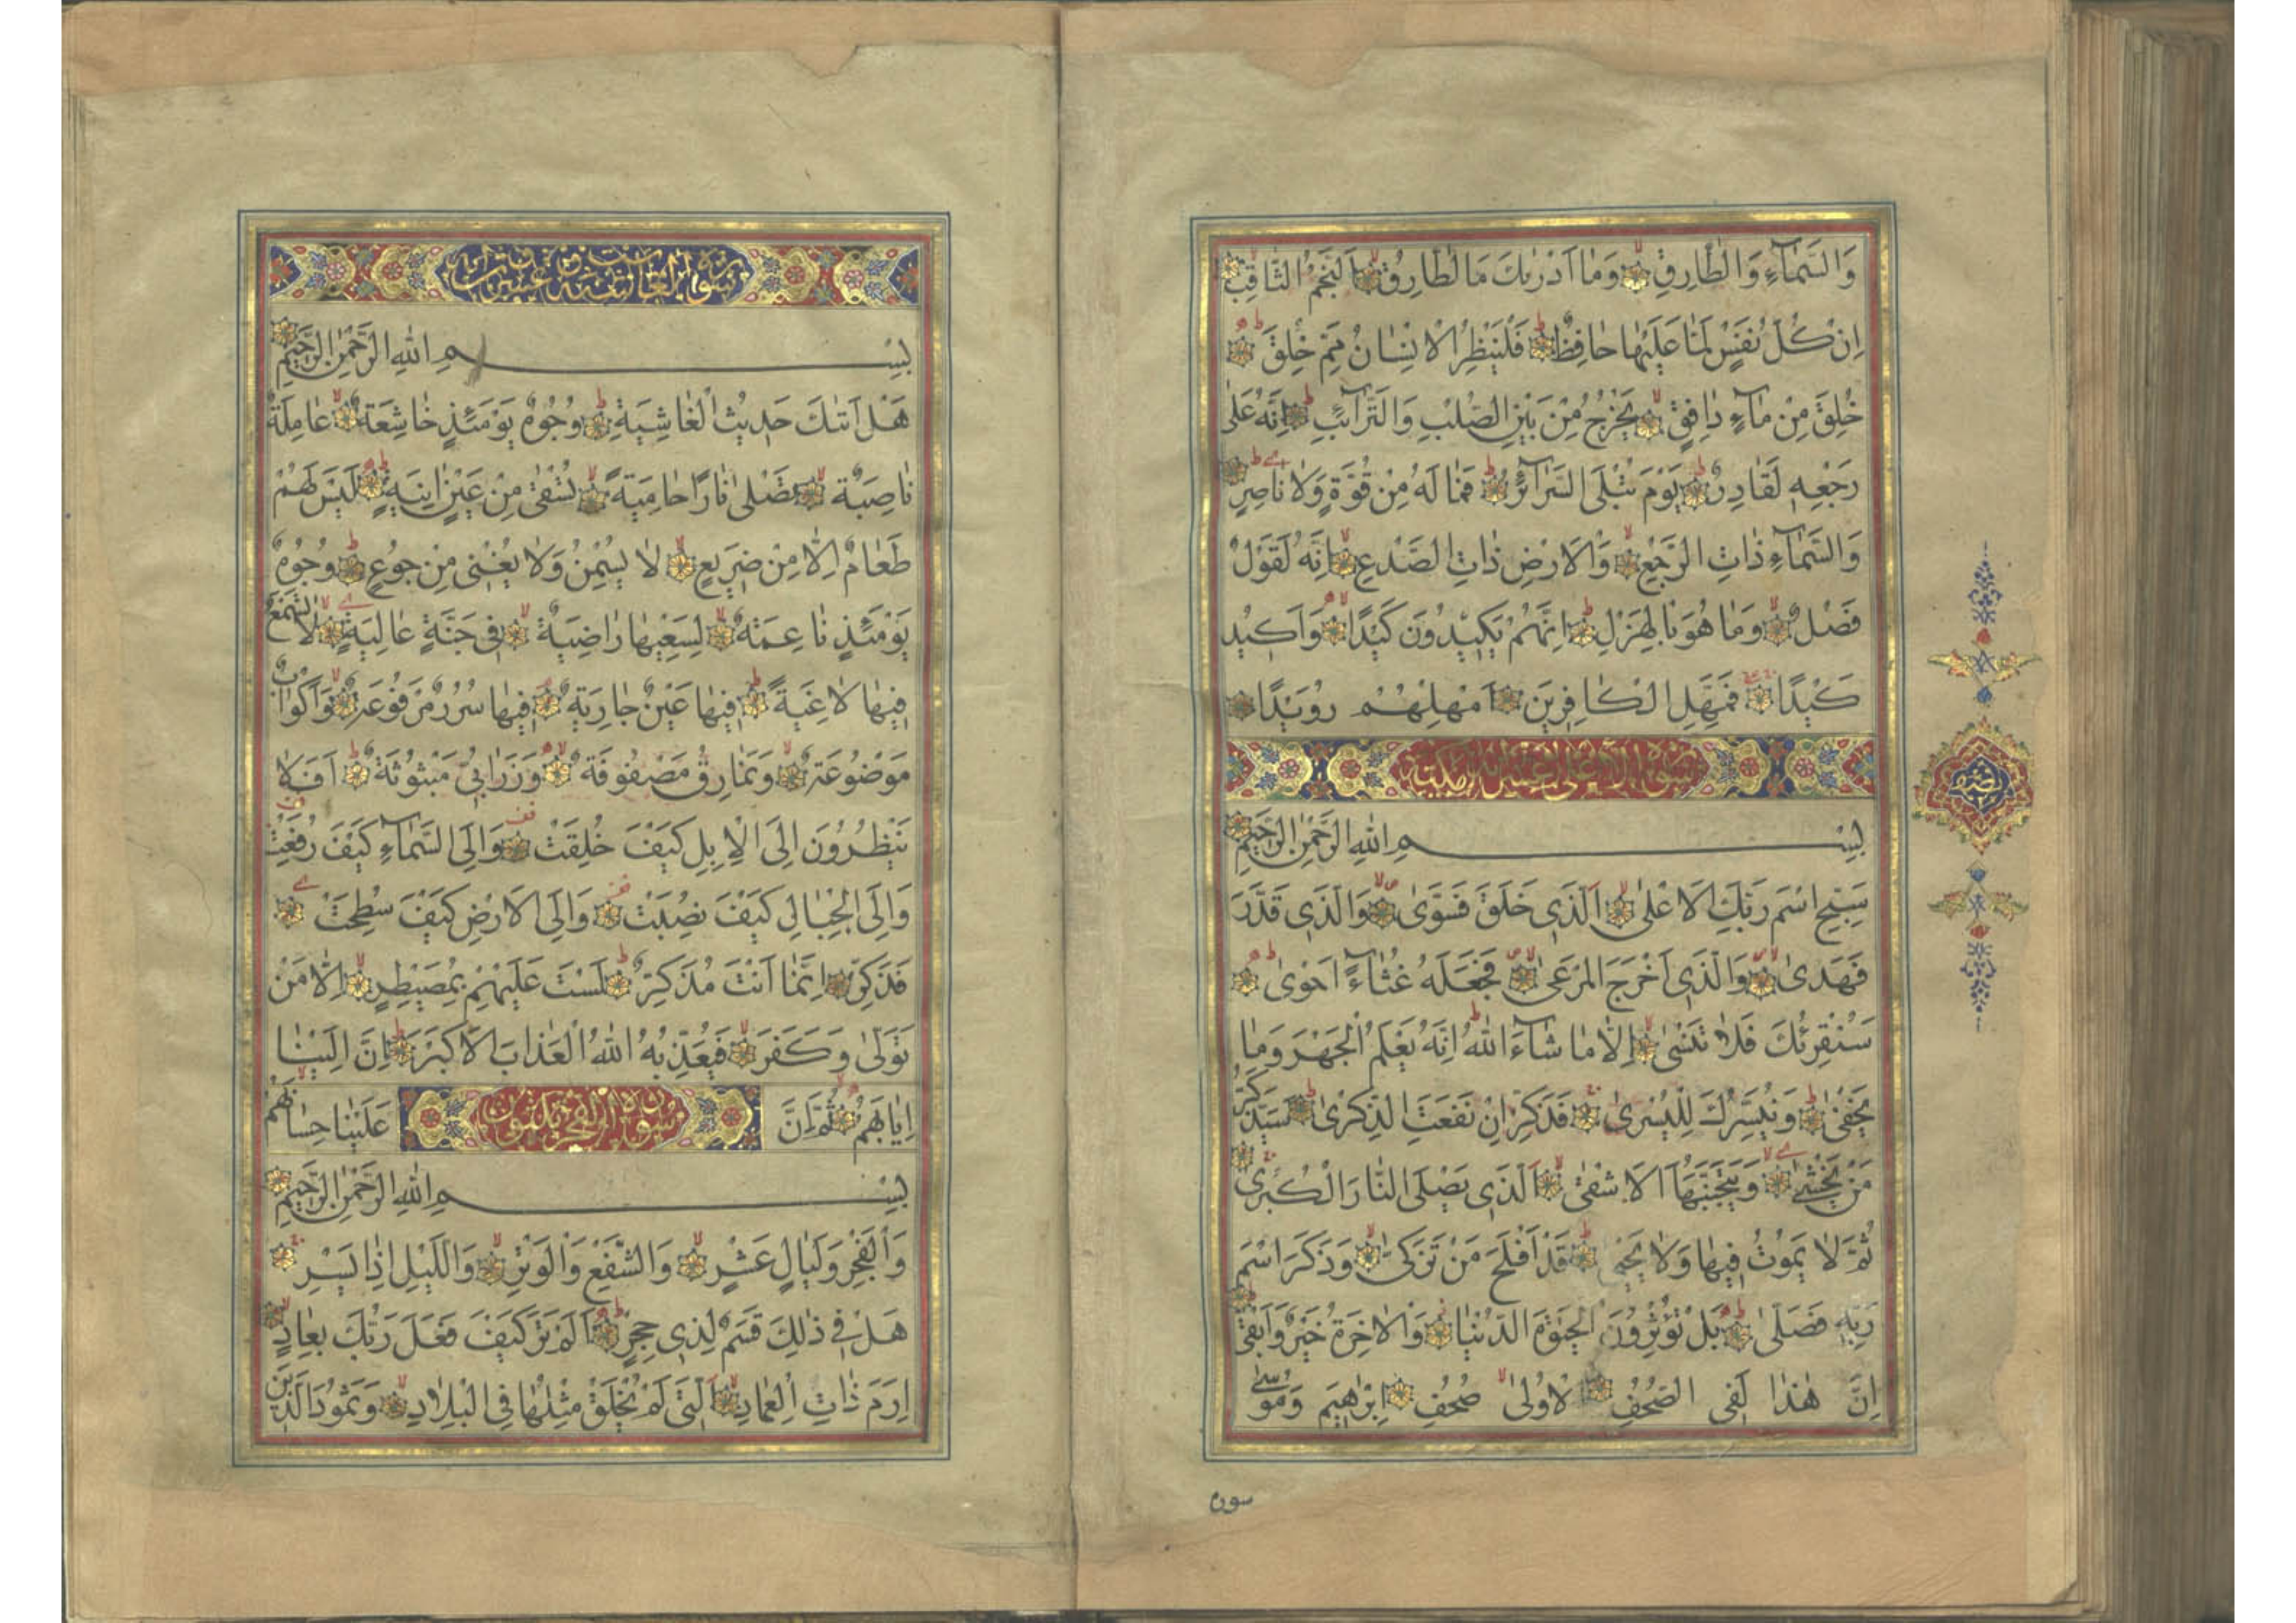 وَالسَّمَآءِ وَالطَّارِقِ وَمَا اَدْرٰيكَ مَا الطَّارِقُ اَلنَّجْمُ الثَّاقِبُ
اِنْ كُلُّ نَفْسٍ لَمَّا عَلَيْهَا حَافِظٌ فَلْيَنْظُرِ الْاِنْسَانُ مِمَّ خُلِقَ
خُلِقَ مِنْ مَآءٍ دَافِقٍ يَخْرُجُ مِنْ بَيْنِ الصُّلْبِ وَالتَّرَآئِبِ اِنَّهُ عَلٰى
رَجْعِهٖ لَقَادِرٌ يَوْمَ تُبْلَى السَّرَآئِرُ فَمَا لَهُ مِنْ قُوَّةٍ وَلَا نَاصِرٍ
وَالسَّمَآءِ ذَاتِ الرَّجْعِ وَالْاَرْضِ ذَاتِ الصَّدْعِ اِنَّهُ لَقَوْلٌ
فَصْلٌ وَمَا هُوَ بِالْهَزْلِ اِنَّهُمْ يَكِيدُونَ كَيْدًا وَاَكِيدُ
كَيْدًا فَمَهِّلِ الْكَافِرِينَ اَمْهِلْهُمْ رُوَيْدًا
بِسْمِ اللهِ الرَّحْمٰنِ الرَّحِيمِ
سَبِّحِ اسْمَ رَبِّكَ الْاَعْلٰى اَلَّذِى خَلَقَ فَسَوّٰى وَالَّذِى قَدَّرَ
فَهَدٰى وَالَّذِى اَخْرَجَ الْمَرْعٰى فَجَعَلَهُ غُثَآءً اَحْوٰى
سَنُقْرِئُكَ فَلَا تَنْسٰى اِلَّا مَا شَآءَ اللهُ اِنَّهُ يَعْلَمُ الْجَهْرَ وَمَا
يَخْفٰى وَنُيَسِّرُكَ لِلْيُسْرٰى فَذَكِّرْ اِنْ نَفَعَتِ الذِّكْرٰى سَيَذَّكَّرُ
مَنْ يَخْشٰى وَيَتَجَنَّبُهَا الْاَشْقٰى اَلَّذِى يَصْلَى النَّارَ الْكُبْرٰى
ثُمَّ لَا يَمُوتُ فِيهَا وَلَا يَحْيٰى قَدْ اَفْلَحَ مَنْ تَزَكّٰى وَذَكَرَ اسْمَ
رَبِّهٖ فَصَلّٰى بَلْ تُؤْثِرُونَ الْحَيٰوةَ الدُّنْيَا وَالْاٰخِرَةُ خَيْرٌ وَاَبْقٰى
اِنَّ هٰذَا لَفِى الصُّحُفِ الْاُولٰى صُحُفِ اِبْرٰهِيمَ وَمُوسٰى
سورة
سورة الغاشية ست وعشرون
بِسْمِ اللهِ الرَّحْمٰنِ الرَّحِيمِ
هَلْ اَتٰيكَ حَدِيثُ الْغَاشِيَةِ وُجُوهٌ يَوْمَئِذٍ خَاشِعَةٌ عَامِلَةٌ
نَاصِبَةٌ تَصْلٰى نَارًا حَامِيَةً تُسْقٰى مِنْ عَيْنٍ اٰنِيَةٍ لَيْسَ لَهُمْ
طَعَامٌ اِلَّا مِنْ ضَرِيعٍ لَا يُسْمِنُ وَلَا يُغْنِى مِنْ جُوعٍ وُجُوهٌ
يَوْمَئِذٍ نَاعِمَةٌ لِسَعْيِهَا رَاضِيَةٌ فِى جَنَّةٍ عَالِيَةٍ لَا تَسْمَعُ
فِيهَا لَاغِيَةً فِيهَا عَيْنٌ جَارِيَةٌ فِيهَا سُرُرٌ مَرْفُوعَةٌ وَاَكْوَابٌ
مَوْضُوعَةٌ وَنَمَارِقُ مَصْفُوفَةٌ وَزَرَابِىُّ مَبْثُوثَةٌ اَفَلَا
يَنْظُرُونَ اِلَى الْاِبِلِ كَيْفَ خُلِقَتْ وَاِلَى السَّمَآءِ كَيْفَ رُفِعَتْ
وَاِلَى الْجِبَالِ كَيْفَ نُصِبَتْ وَاِلَى الْاَرْضِ كَيْفَ سُطِحَتْ
فَذَكِّرْ اِنَّمَا اَنْتَ مُذَكِّرٌ لَسْتَ عَلَيْهِمْ بِمُصَيْطِرٍ اِلَّا مَنْ
تَوَلّٰى وَكَفَرَ فَيُعَذِّبُهُ اللهُ الْعَذَابَ الْاَكْبَرَ اِنَّ اِلَيْنَا
اِيَابَهُمْ ثُمَّ اِنَّ عَلَيْنَا حِسَابَهُمْ
سورة الفجر ثلثون
بِسْمِ اللهِ الرَّحْمٰنِ الرَّحِيمِ
وَالْفَجْرِ وَلَيَالٍ عَشْرٍ وَالشَّفْعِ وَالْوَتْرِ وَاللَّيْلِ اِذَا يَسْرِ
هَلْ فِى ذٰلِكَ قَسَمٌ لِذِى حِجْرٍ اَلَمْ تَرَ كَيْفَ فَعَلَ رَبُّكَ بِعَادٍ
اِرَمَ ذَاتِ الْعِمَادِ اَلَّتِى لَمْ يُخْلَقْ مِثْلُهَا فِى الْبِلَادِ وَثَمُودَ الَّذِينَ